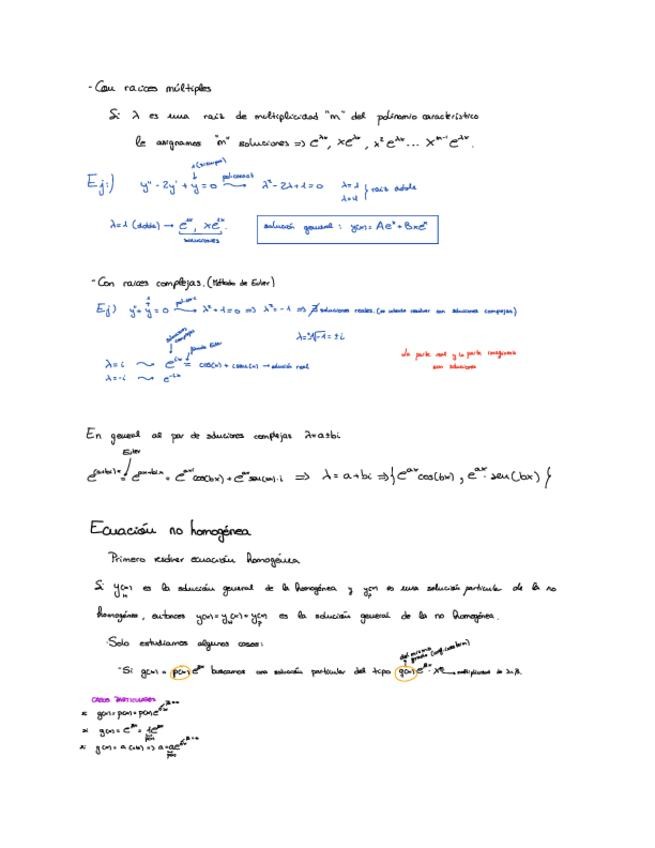 - Con raíces múltiples
Si λ es una raíz de multiplicidad "m" del polinomio característico
le asignamos "m" soluciones => e^λx, xe^λx, x²e^λx... x^m-1 e^λx.
Ej:) y'' - 2y' + y = 0 → λ² - 2λ + 1 = 0 λ=1 λ=1 } raíz doble
λ=1 (doble) → e^x, xe^x.
soluciones
solución general: y(x) = Ae^x + Bxe^x
- Con raíces complejas. (Método de Euler)
Ej) y'' + y = 0 → λ² + 1 = 0 => λ² = -1 => ∄ soluciones reales. (se intenta resolver con soluciones complejas)
λ = ±√-1 = ±i
soluciones complejas
fórmula Euler
λ = i ⇝ e^ix = cos(x) + i sen(x) → solución real
λ = -i ⇝ e^-ix
la parte real y la parte imaginaria
son soluciones
En general al par de soluciones complejas λ = a±bi
Euler
e^(a+bi)x = e^ax+bix = e^ax cos(bx) + e^ax sen(bx)·i => λ = a+bi => { e^ax cos(bx), e^ax · sen(bx) }
Ecuación no homogénea
Primero resolver ecuación homogénea
Si y_H(x) es la solución general de la homogénea y y_p(x) es una solución particular de la no
homogénea, entonces y(x) = y_H(x) + y_p(x) es la solución general de la no homogénea.
Solo estudiamos algunos casos:
del mismo grado
- Si g(x) = p(x) e^βx buscamos una solución particular del tipo q(x) e^βx · x^
CASOS PARTICULARES
* g(x) = p(x) = p(x)e^0x
* g(x) = e^βx = 1e^βx
p(x)